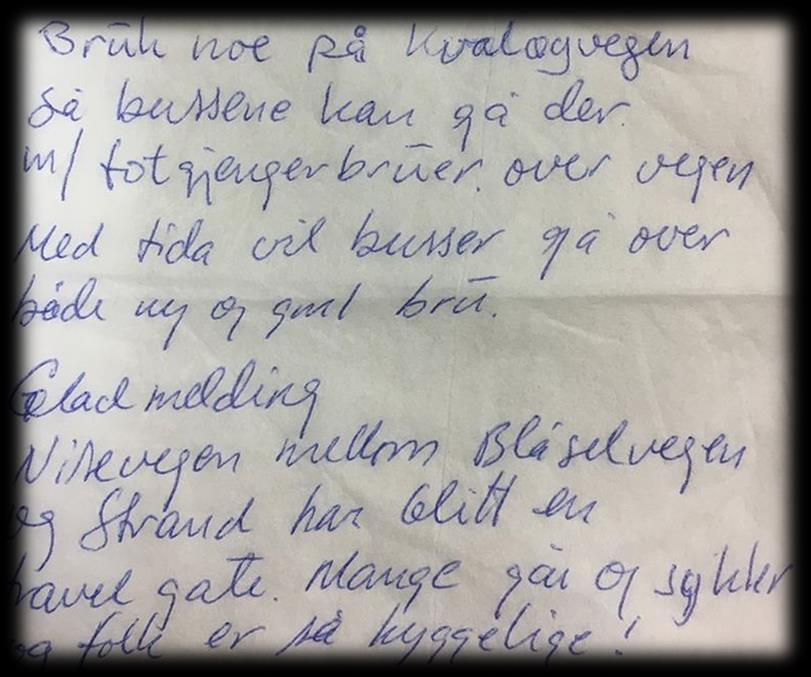 Bruk noe på Kvaløgvegen
Så bussene kan gå der.
m/ fotgjengerbruer. over vegen
Med tida vil busser gå over
både ny og gml bru.
Gladmelding
Nisevegen mellom Blåselvegen
og Strand har blitt en
travel gate. Mange går og sykler
og folk er så hyggelige!